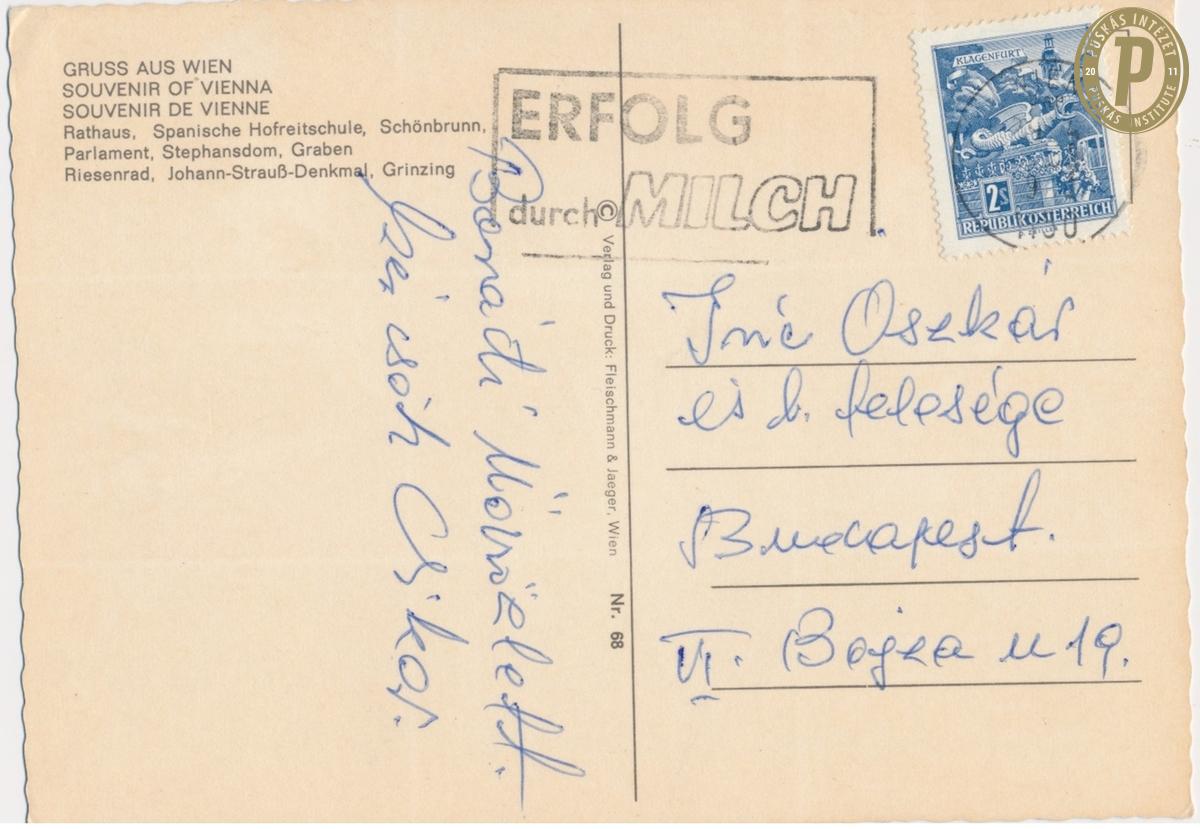 GRUSS AUS WIEN
SOUVENIR OF VIENNA
SOUVENIR DE VIENNE
Rathaus, Spanische Hofreitschule, Schönbrunn,
Parlament, Stephansdom, Graben
Riesenrad, Johann-Strauß-Denkmal, Grinzing
ERFOLG
durch MILCH
KLAGENFURT
2S
REPUBLIK ÖSTERREICH
PUSKÁS INTÉZET
20 P 11
PUSKÁS INSTITUTE
© Verlag und Druck: Fleischmann & Jaeger, Wien Nr. 68
Oszkár
és b. felesége
Budapest.
VI. Bajza u 19.